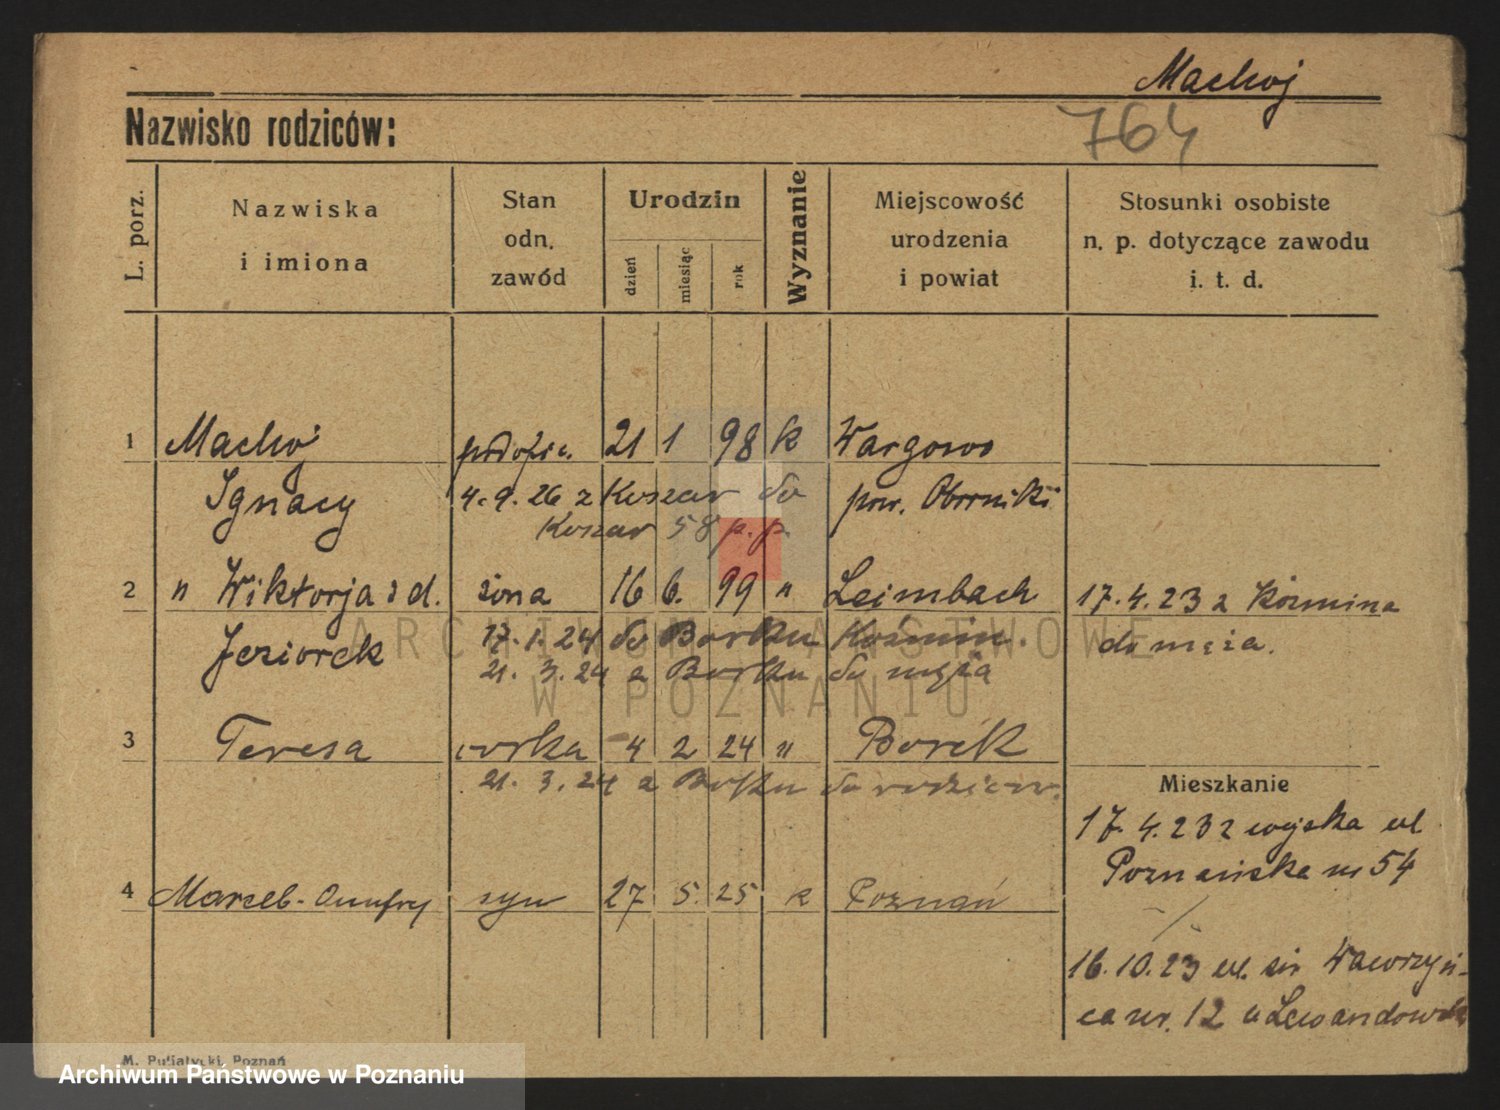 Machoj
Nazwisko rodziców:
764
L. porz.
Nazwiska
i imiona
Stan
odn.
zawód
Urodzin
dzień
miesiąc
rok
Wyznanie
Miejscowość
urodzenia
i powiat
Stosunki osobiste
n. p. dotyczące zawodu
i. t. d.
1 Machoj podofic. 21 1 98 k Wargowo
Ignacy 4.9.26 z Koszar do pow. Oborniki
Koszar 58 p.p.
2 " Wiktorja z d. żona 16 6. 99 " Leimbach 17.4.23 z Koźmina
17.1.24 do Borku Koźmin. do męża.
Jeziorek 21. 3. 24 z Borku do męża
3 Teresa córka 4 2 24 " Borek
21. 3. 24 z Borku do rodziców.
Mieszkanie
17.4.23 z wojska ul
Poznańska 54
4 Marceli-Onufry syn 27 5. 25 k Poznań
16.10.23 ul. św Wawrzyń-
ca nr. 12 u Lewandowsk
M. Putiatycki, Poznań
ARCHIWUM PAŃSTWOWE
W POZNANIU
Archiwum Państwowe w Poznaniu